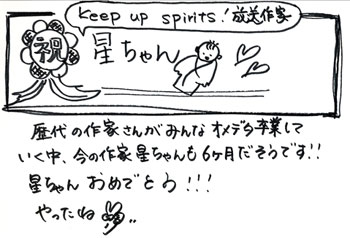 Keep up spirits! 放送作家
祝 星ちゃん
歴代の作家さんがみんなオメデタ卒業して
いく中、今の作家星ちゃんも6ヶ月だそうです!!
星ちゃん おめでとう!!!
やったね